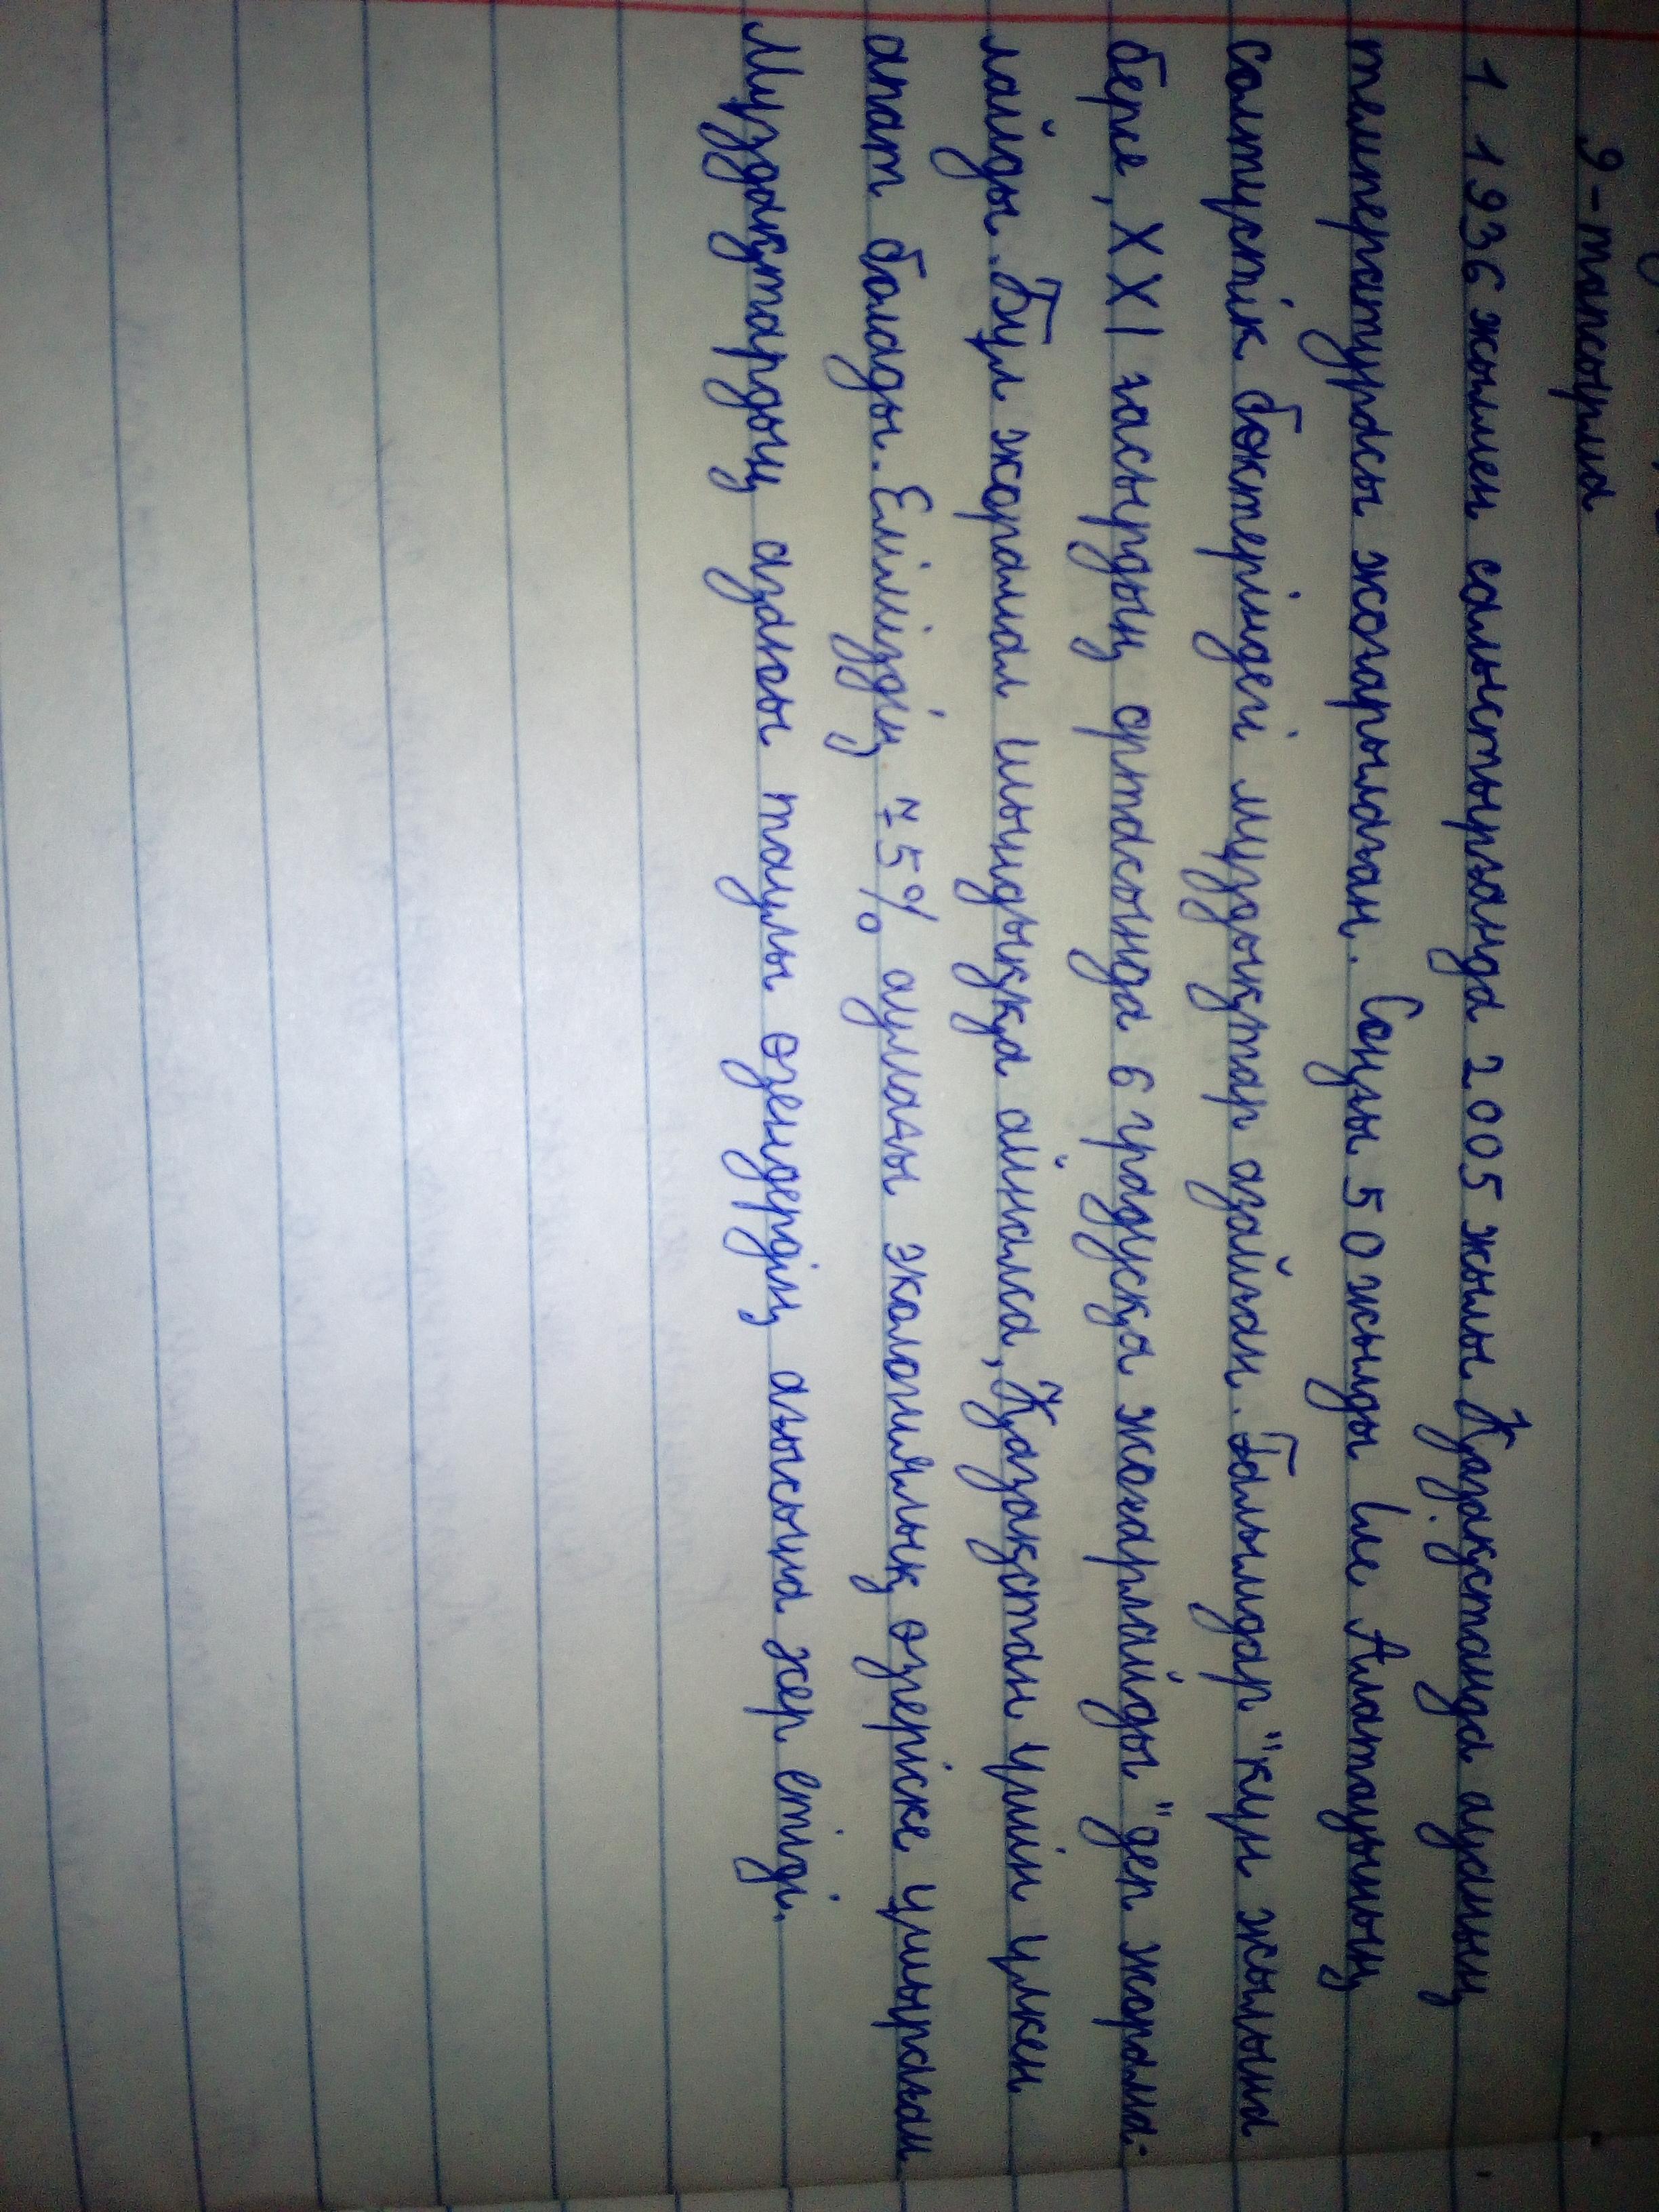 9-тапсырма
1. 1936 жылмен салыстырғанда 2005 жылы Қазақстанда ауаның
температурасы жоғарылаған. Соңғы 50 жылды Іле Алатауының
солтүстік бөктеріндегі мұздықтар азайған. Ғалымдар "күн жылына
бере, XXI ғасырдың ортасында 6 градусқа жоғарлайды" деп жорама-
лайды. Бұл жорамал шындыққа айналса, Қазақстан үшін үлкен
апат болады. Еліміздің 75% аумағы экологиялық өзгеріске ұшыраған
Мұздақтардың азаюы таулы өзендердің ағысына жер етіді.